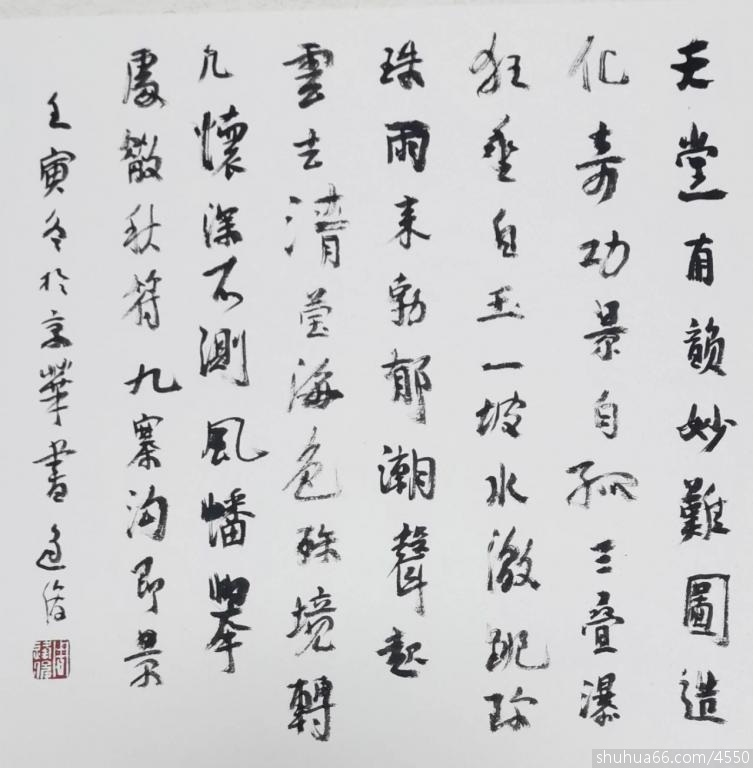 天堂有韻妙難圖造
化奇功景自孤三疊瀑
狂垂白玉一坡水激跳珍
珠雨来勃郁潮聲起
雲去清瑩海色殊境轉
凡懷深不測風幡舉
處散秋符九寨溝即景
壬寅冬於京華書
shuhua66.com/4550